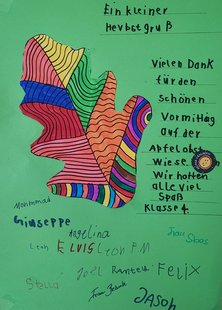 Ein kleiner
Herbstgruß
Vielen Dank
für den
Schönen
Vormittag
auf der
Apfelobst
Wiese.
Wir hatten
alle viel
Spaß
Klasse 4.
Mohammad
Giuseppe
Angelina
Frau
Leon
ELVIS
Leon P.M
Joel
Felix
Stella
Frau
JASON